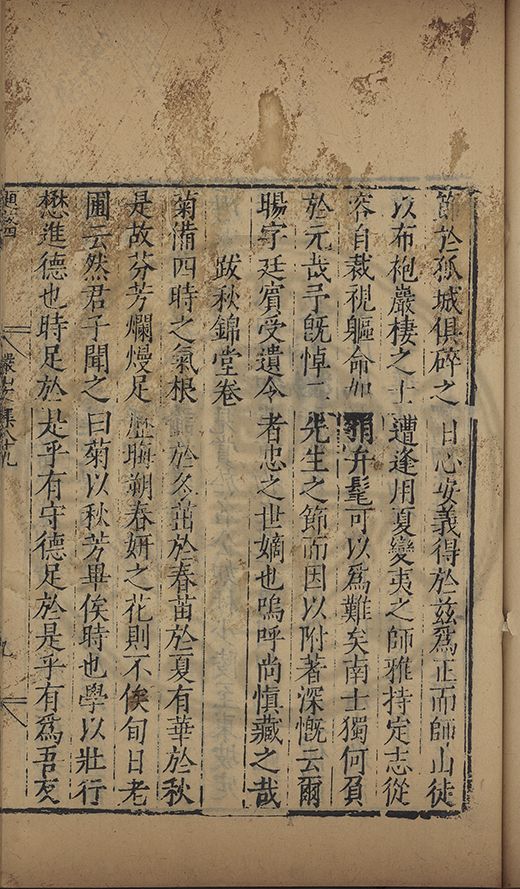 節於孤城俱碎之日心安義得於茲爲正而師山徒
以布袍巖棲之士遭逢用夏變夷之師雅持定志從
容自裁視軀命如弁髦可以爲難矣南士獨何負
於元哉予旣悼二先生之節而因以附著深慨云爾
賜字廷賓受遺令者忠之世嫡也嗚呼尚愼藏之哉
跋秋錦堂卷
菊備四時之氣根於冬茁於春苗於夏有華於秋
是故芬芳爛熳足歷晦朔春妍之花則不俟旬日老
圃云然君子聞之曰菊以秋芳畢俟時也學以壯行
懋進德也時足於是乎有守德足於是乎有爲吾友